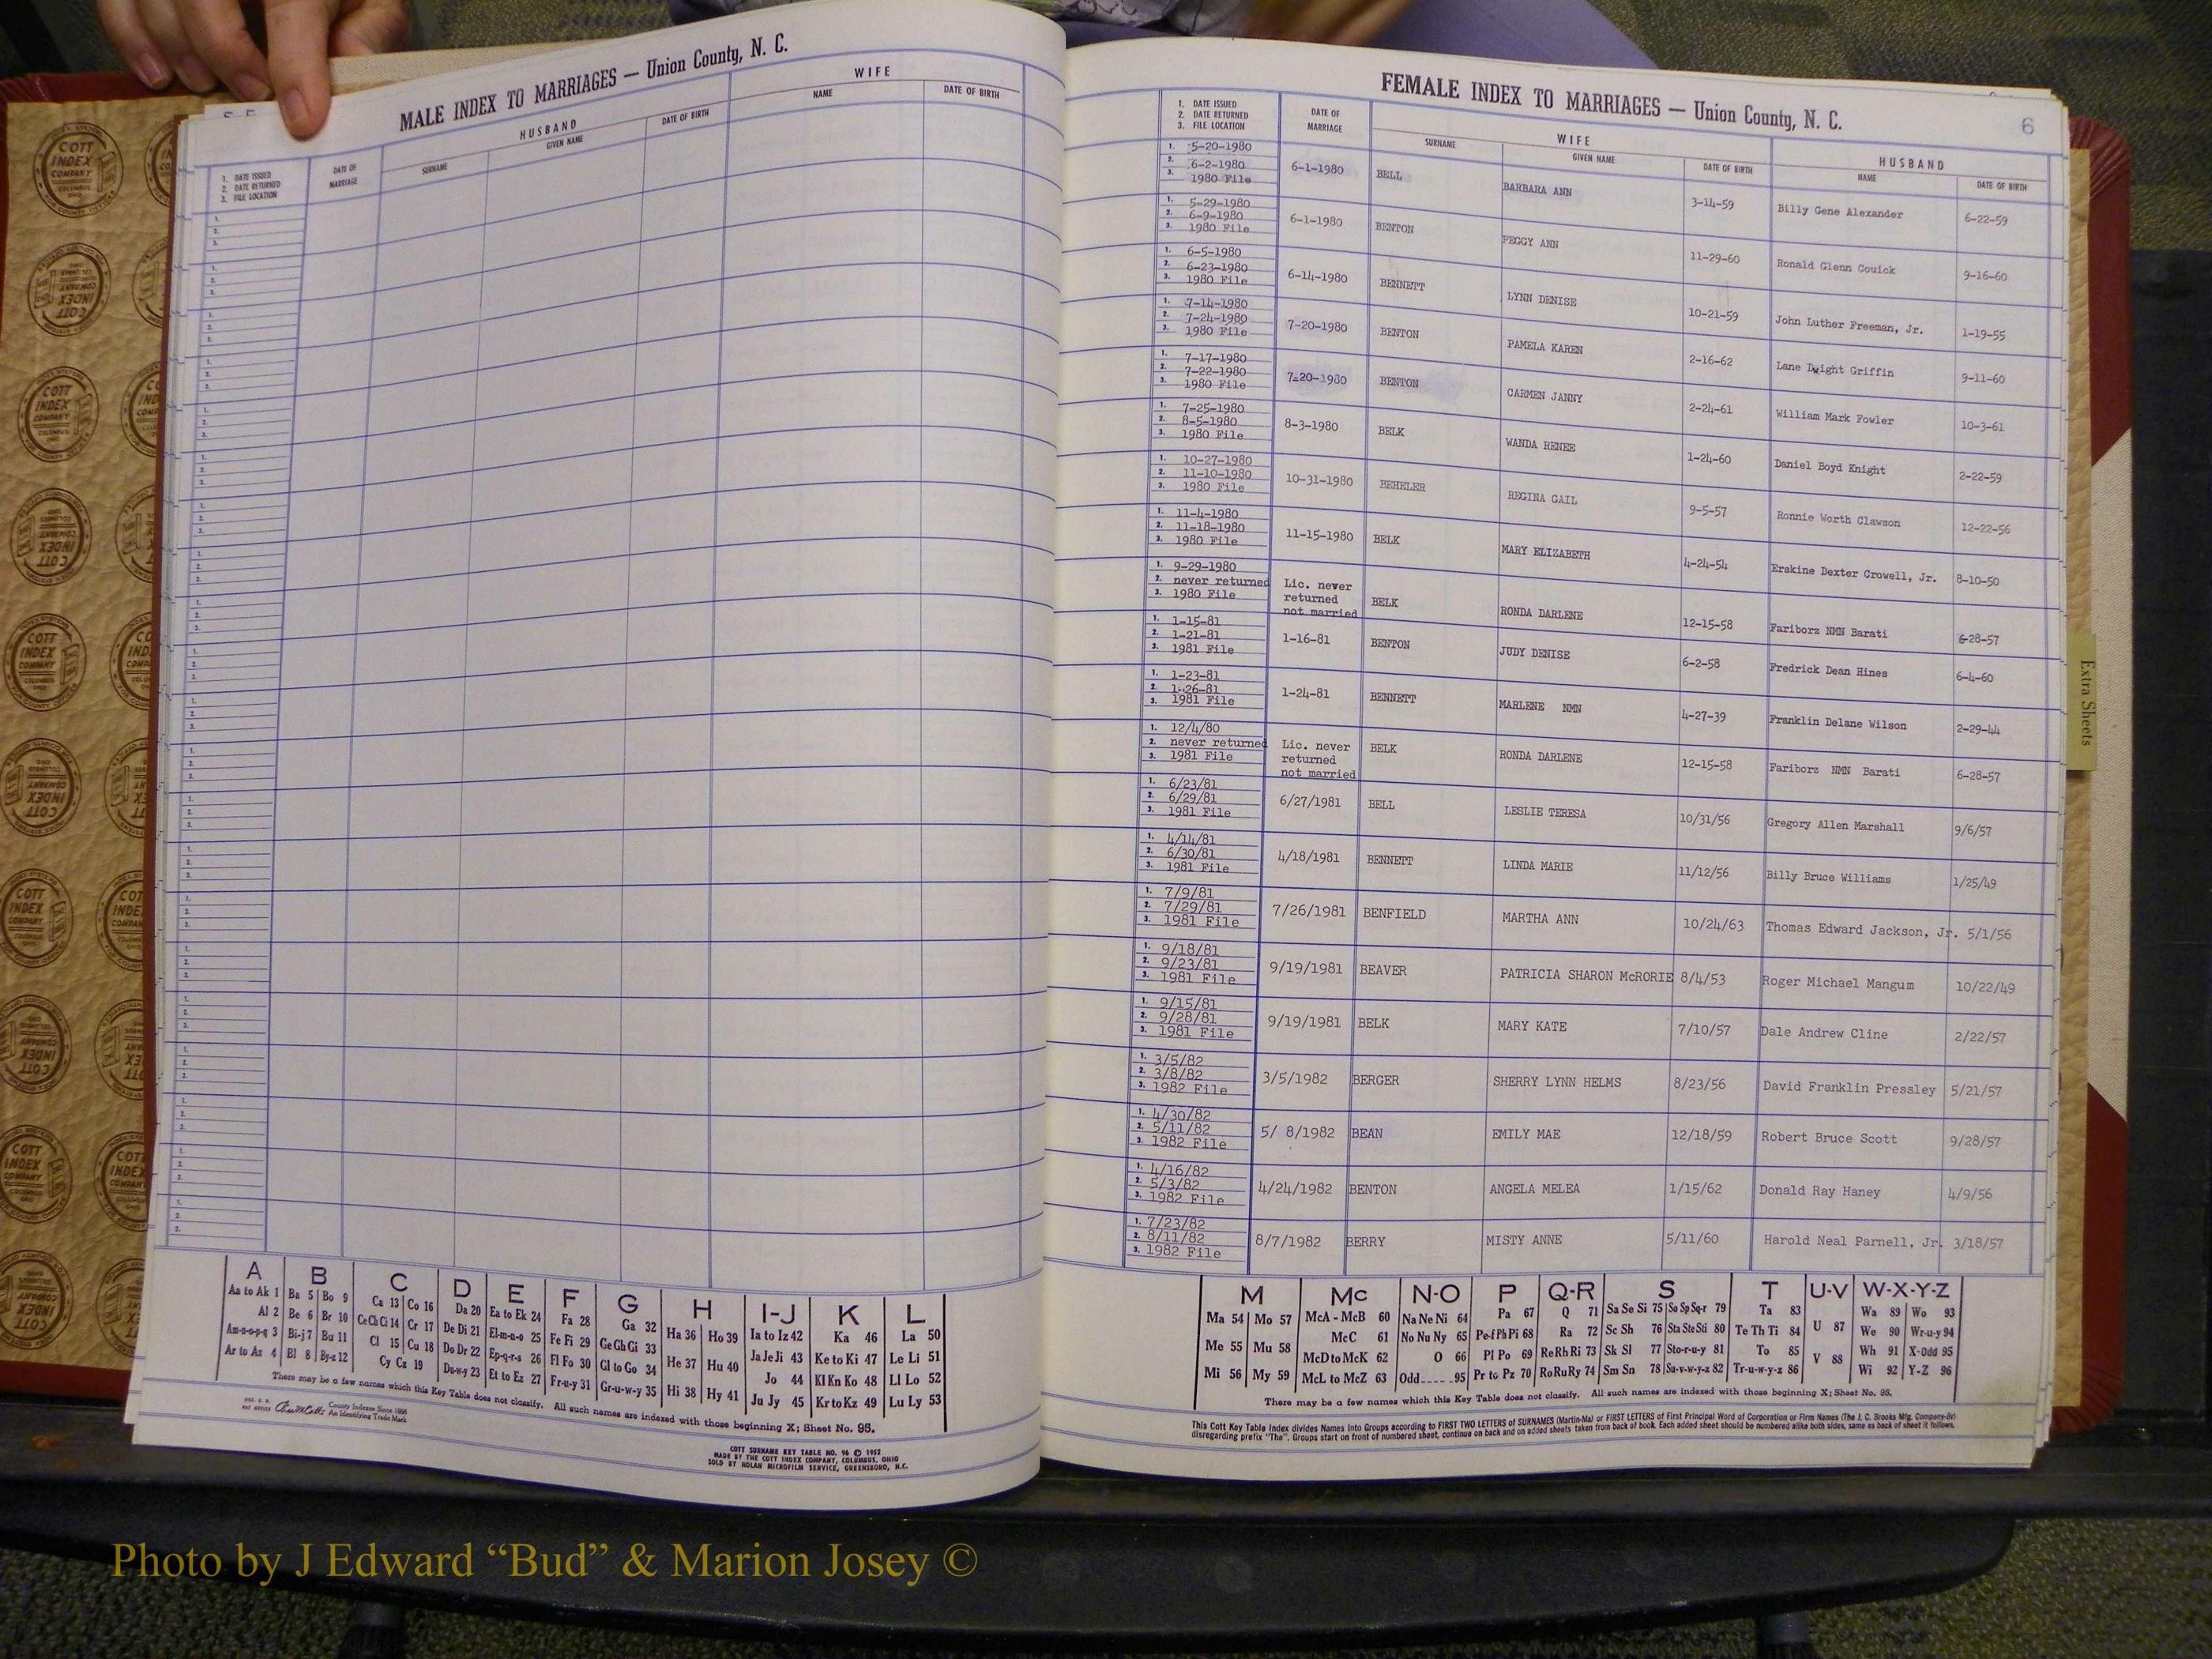 MALE INDEX TO MARRIAGES — Union County, N. C.
HUSBAND
WIFE
1. DATE ISSUED
2. DATE RETURNED
3. FILE LOCATION
DATE OF MARRIAGE
SURNAME
GIVEN NAME
DATE OF BIRTH
NAME
DATE OF BIRTH
A B C D E F G H I-J K L
Aa to Ak 1 Ba 5 Bo 9 Ca 13 Co 16 Da 20 Ea to Ek 24 Fa 28 Ga 32 Ha 36 Ho 39 Ia to Iz 42 Ka 46 La 50
Al 2 Be 6 Br 10 Ce Ch Ci 14 Cr 17 De Di 21 El-m-n-o 25 Fe Fi 29 Ge Gh Gi 33 He 37 Hu 40 Ja Je Ji 43 Ke to Ki 47 Le Li 51
Am-n-o-p-q 3 Bi-j 7 Bu 11 Cl 15 Cu 18 Do Dr 22 Ep-q-r-s 26 Fl Fo 30 Gl to Go 34 Hi 38 Hy 41 Jo 44 Kl Kn Ko 48 Ll Lo 52
Ar to Az 4 Bl 8 By-z 12 Cy Cz 19 Du-w-y 23 Et to Ez 27 Fr-u-y 31 Gr-u-w-y 35 Ju Jy 45 Kr to Kz 49 Lu Ly 53
There may be a few names which this Key Table does not classify. All such names are indexed with those beginning X; Sheet No. 95.
County Indexes Since 1888
An Identifying Trade Mark
COTT SURNAME KEY TABLE NO. 96 © 1952
MADE BY THE COTT INDEX COMPANY, COLUMBUS, OHIO
SOLD BY NOLAN MICROFILM SERVICE, GREENSBORO, N.C.
FEMALE INDEX TO MARRIAGES — Union County, N. C.
6
1. DATE ISSUED
2. DATE RETURNED
3. FILE LOCATION
DATE OF MARRIAGE
WIFE
SURNAME
GIVEN NAME
DATE OF BIRTH
HUSBAND
NAME
DATE OF BIRTH
1. 5-20-1980
2. 6-2-1980
3. 1980 File
6-1-1980 BELL BARBARA ANN 3-14-59 Billy Gene Alexander 6-22-59
1. 5-29-1980
2. 6-9-1980
3. 1980 File
6-1-1980 BENTON PEGGY ANN 11-29-60 Ronald Glenn Couick 9-16-60
1. 6-5-1980
2. 6-23-1980
3. 1980 File
6-14-1980 BENNETT LYNN DENISE 10-21-59 John Luther Freeman, Jr. 1-19-55
1. 7-14-1980
2. 7-24-1980
3. 1980 File
7-20-1980 BENTON PAMELA KAREN 2-16-62 Lane Dwight Griffin 9-11-60
1. 7-17-1980
2. 7-22-1980
3. 1980 File
7-20-1980 BENTON CARMEN JANNY 2-24-61 William Mark Fowler 10-3-61
1. 7-25-1980
2. 8-5-1980
3. 1980 File
8-3-1980 BELK WANDA RENEE 1-24-60 Daniel Boyd Knight 2-22-59
1. 10-27-1980
2. 11-10-1980
3. 1980 File
10-31-1980 BEHELER REGINA GAIL 9-5-57 Ronnie Worth Clawson 12-22-56
1. 11-4-1980
2. 11-18-1980
3. 1980 File
11-15-1980 BELK MARY ELIZABETH 4-24-54 Erskine Dexter Crowell, Jr. 8-10-50
1. 9-29-1980
2. never returned
3. 1980 File
Lic. never returned not married BELK RONDA DARLENE 12-15-58 Fariborz NMN Barati 6-28-57
1. 1-15-81
2. 1-21-81
3. 1981 File
1-16-81 BENTON JUDY DENISE 6-2-58 Fredrick Dean Hines 6-4-60
1. 1-23-81
2. 1-26-81
3. 1981 File
1-24-81 BENNETT MARLENE NMN 4-27-39 Franklin Delane Wilson 2-29-44
1. 12/4/80
2. never returned
3. 1981 File
Lic. never returned not married BELK RONDA DARLENE 12-15-58 Fariborz NMN Barati 6-28-57
1. 6/23/81
2. 6/29/81
3. 1981 File
6/27/1981 BELL LESLIE TERESA 10/31/56 Gregory Allen Marshall 9/6/57
1. 4/14/81
2. 6/30/81
3. 1981 File
4/18/1981 BENNETT LINDA MARIE 11/12/56 Billy Bruce Williams 1/25/49
1. 7/9/81
2. 7/29/81
3. 1981 File
7/26/1981 BENFIELD MARTHA ANN 10/24/63 Thomas Edward Jackson, Jr. 5/1/56
1. 9/18/81
2. 9/23/81
3. 1981 File
9/19/1981 BEAVER PATRICIA SHARON McRORIE 8/4/53 Roger Michael Mangum 10/22/49
1. 9/15/81
2. 9/28/81
3. 1981 File
9/19/1981 BELK MARY KATE 7/10/57 Dale Andrew Cline 2/22/57
1. 3/5/82
2. 3/8/82
3. 1982 File
3/5/1982 BERGER SHERRY LYNN HELMS 8/23/56 David Franklin Pressley 5/21/57
1. 4/30/82
2. 5/11/82
3. 1982 File
5/ 8/1982 BEAN EMILY MAE 12/18/59 Robert Bruce Scott 9/28/57
1. 4/16/82
2. 5/3/82
3. 1982 File
4/24/1982 BENTON ANGELA MELEA 1/15/62 Donald Ray Haney 4/9/56
1. 7/23/82
2. 8/11/82
3. 1982 File
8/7/1982 BERRY MISTY ANNE 5/11/60 Harold Neal Parnell, Jr. 3/18/57
M Mc N-O P Q-R S T U-V W-X-Y-Z
Ma 54 Mo 57 McA - McB 60 Na Ne Ni 64 Pa 67 Q 71 Sa Se Si 75 So Sp Sq-r 79 Ta 83 U 87 Wa 89 Wo 93
Me 55 Mu 58 McC 61 No Nu Ny 65 Pe-f Ph Pi 68 Ra 72 Sc Sh 76 Sta Ste Sti 80 Te Th Ti 84 V 88 We 90 Wr-u-y 94
Mi 56 My 59 McD to McK 62 O 66 Pl Po 69 Re Rh Ri 73 Sk Sl 77 Sto-r-u-y 81 To 85 Wh 91 X-Odd 95
McL to McZ 63 Odd 95 Pr to Pz 70 Ro Ru Ry 74 Sm Sn 78 Su-v-w-y-z 82 Tr-u-w-y-z 86 Wi 92 Y-Z 96
There may be a few names which this Key Table does not classify. All such names are indexed with those beginning X; Sheet No. 95.
This Cott Key Table Index divides Names into Groups according to FIRST TWO LETTERS of SURNAMES (Martin-Ma) or FIRST LETTERS of First Principal Word of Corporation or Firm Names (The J. C. Brooks Mfg. Company-Br)
disregarding prefix "The". Groups start on front of numbered sheet, continue on back and on added sheets taken from back of book. Each added sheet should be numbered alike both sides, same as back of sheet it follows.
Extra Sheets
COTT INDEX COMPANY
Photo by J Edward “Bud” & Marion Josey ©